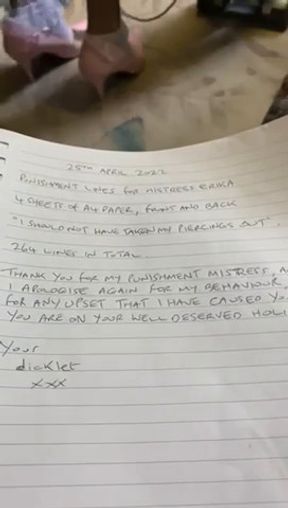 25TH APRIL 2022
PUNISHMENT LINES FOR MISTRESS ERIKA
4 SHEETS OF A4 PAPER, FRONT AND BACK
"I SHOULD NOT HAVE TAKEN MY PIERCINGS OUT".
264 LINES IN TOTAL.
THANK YOU FOR MY PUNISHMENT MISTRESS, A
I APOLOGISE AGAIN FOR MY BEHAVIOUR,
FOR ANY UPSET THAT I HAVE CAUSED YO
YOU ARE ON YOUR WELL DESERVED HOLI
Your
dicklet
xxx